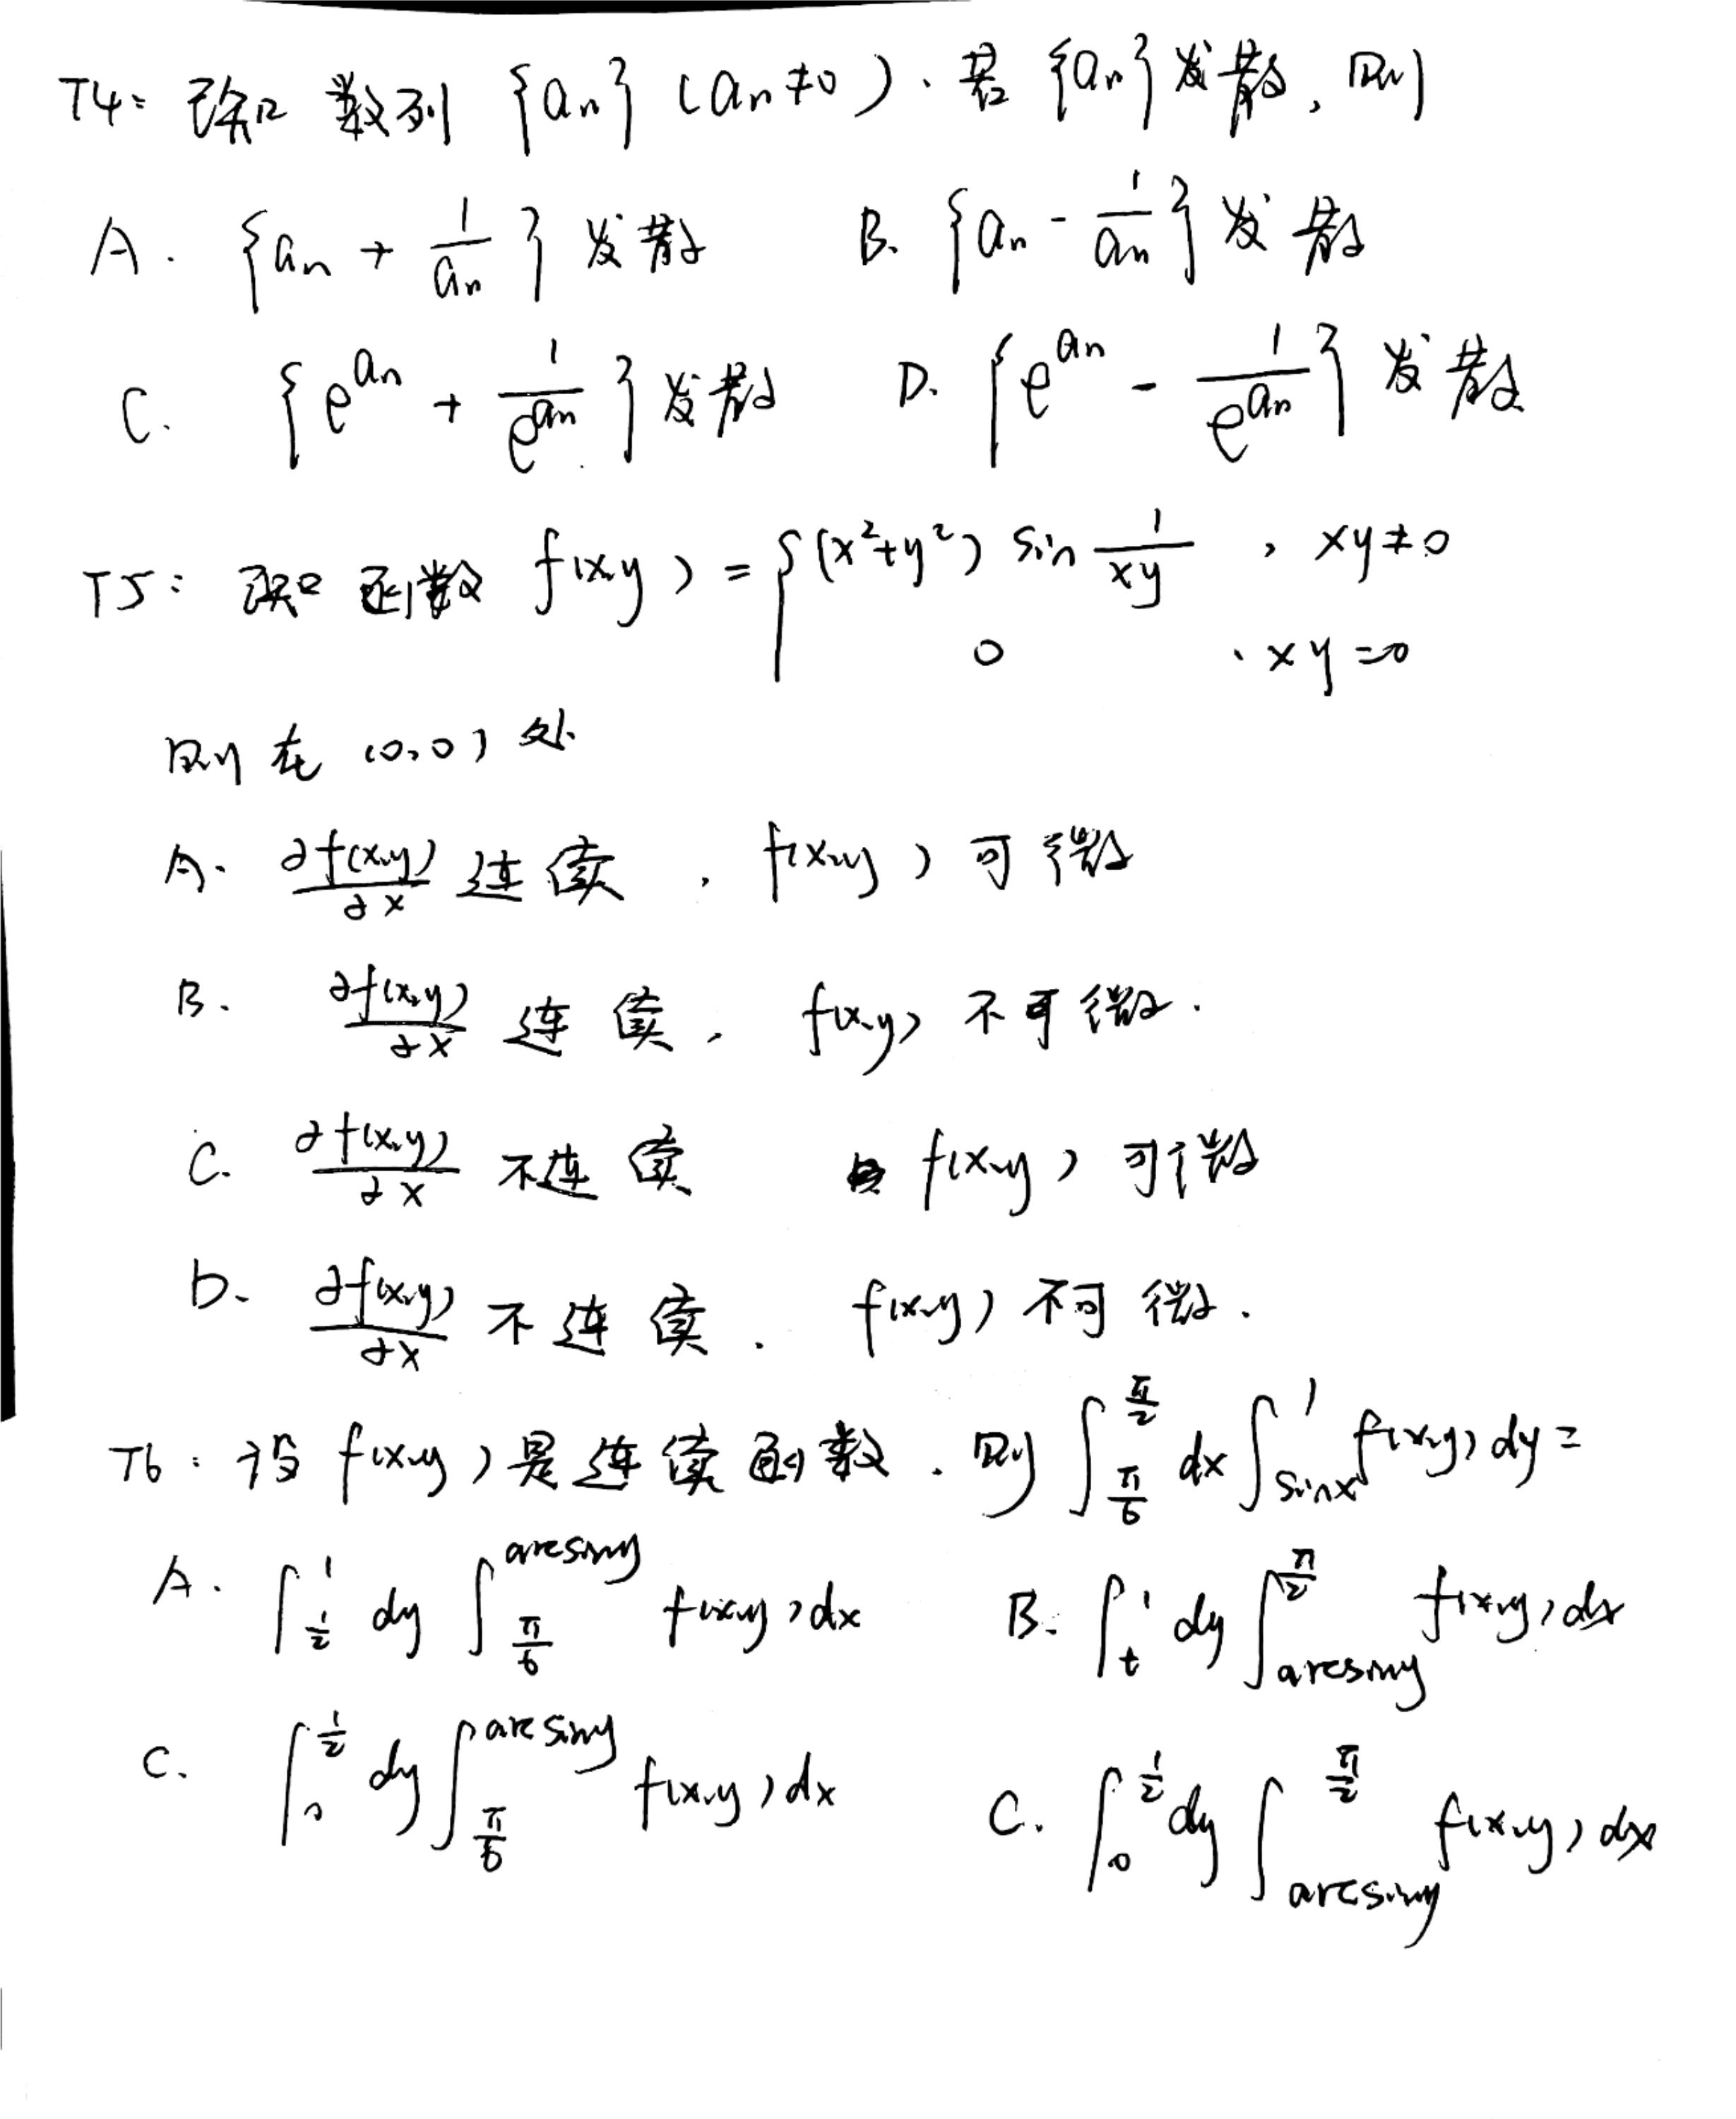 T4: 已知数列 {an} (an≠0). 若 {an} 发散, 则
A. {an + 1/an} 发散 B. {an - 1/an} 发散
C. {e^an + 1/e^an} 发散 D. {e^an - 1/e^an} 发散
T5: 已知函数 f(x,y) = { (x²+y²) sin 1/xy , xy≠0
0 , xy=0
则在 (0,0) 处
A. ∂f(x,y)/∂x 连续 , f(x,y) 可微
B. ∂f(x,y)/∂x 连续 , f(x,y) 不可微.
C. ∂f(x,y)/∂x 不连续 f(x,y) 可微
D. ∂f(x,y)/∂x 不连续 . f(x,y) 不可微.
T6: 设 f(x,y) 是连续函数. 则 ∫_{π/6}^{π/2} dx ∫_{sinx}^{1} f(x,y) dy =
A. ∫_{1/2}^{1} dy ∫_{π/6}^{arcsiny} f(x,y) dx B. ∫_{t}^{1} dy ∫_{arcsiny}^{π/2} f(x,y) dx
C. ∫_{0}^{1/2} dy ∫_{π/6}^{arcsiny} f(x,y) dx C. ∫_{0}^{1/2} dy ∫_{arcsiny}^{π/2} f(x,y) dx